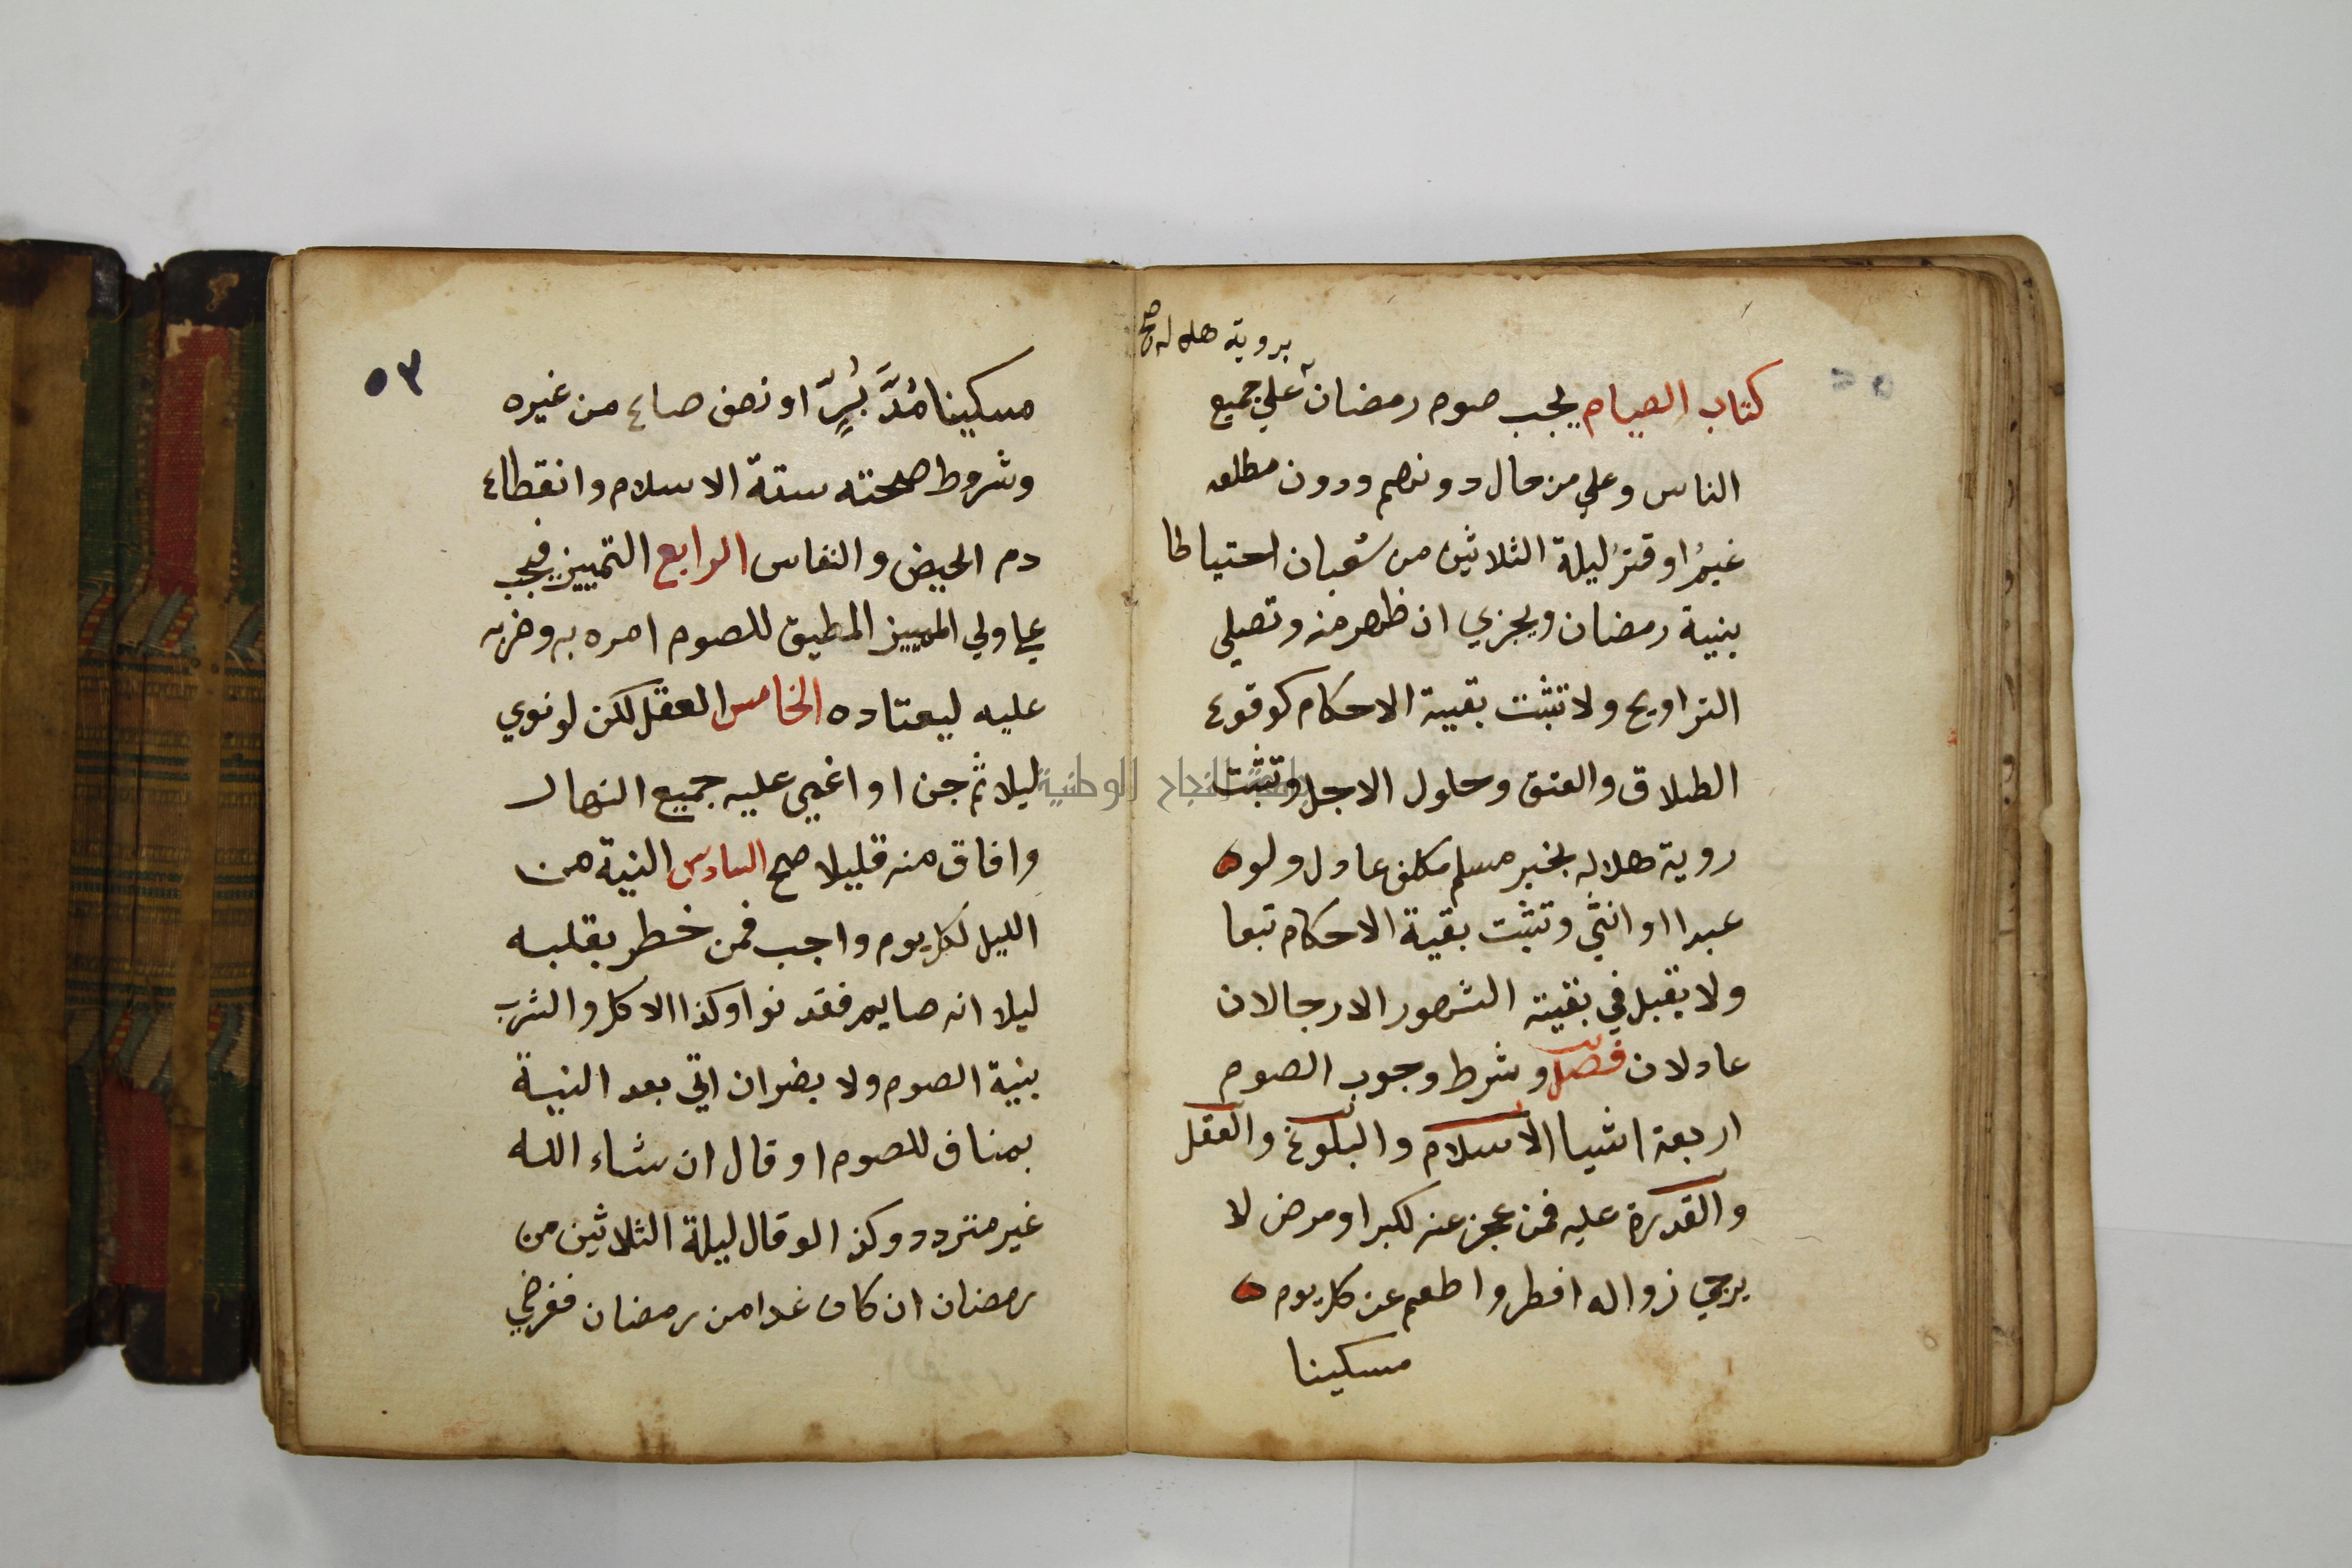 بروية هلاله صح
كتاب الصيام يجب صوم رمضان علي جميع
الناس وعلي من حال دونهم ودون مطلعه
غيمٌ او قترٌ ليلة الثلاثين من شعبان احتياطا
بنية رمضان ويجزي ان ظهر منه وتصلي
التراويح ولا تثبت بقية الاحكام كوقوع
الطلاق والعتق وحلول الاجل وتثبت
روية هلاله بخبر مسلم مكلف عادل ولو ه
عبدا او انثي وتثبت بقية الاحكام تبعا
ولا يقبل في بقية الشهور الا رجلان
عادلان فصل وشرط وجوب الصوم
اربعة اشيا الاسلام والبلوغ والعقل
والقدرة عليه فمن عجز عنه لكبر او مرض لا
يرجي زواله افطر واطعم عن كل يوم ه
مسكينا
٥٣
مسكينا مُدَّ بُرٍّ او نصف صاع من غيره
وشروط صحته ستة الاسلام وانقطاع
دم الحيض والنفاس الرابع التمييز فيجب
علي ولي المميز المطيق للصوم امره به وضربه
عليه ليعتاده الخامس العقل لكن لو نوي
ليلا ثم جن او اغمي عليه جميع النهار
وافاق منه قليلا صح السادس النية من
الليل لكل يوم واجب فمن خطر بقلبه
ليلا انه صايم فقد نوا وكذا الاكل والشرب
بنية الصوم ولا يضر ان اتي بعد النية
بمناف للصوم او قال ان شاء الله
غير متردد وكذا لو قال ليلة الثلاثين من
رمضان ان كان غدا من رمضان ففرضي
جامعة النجاح الوطنية